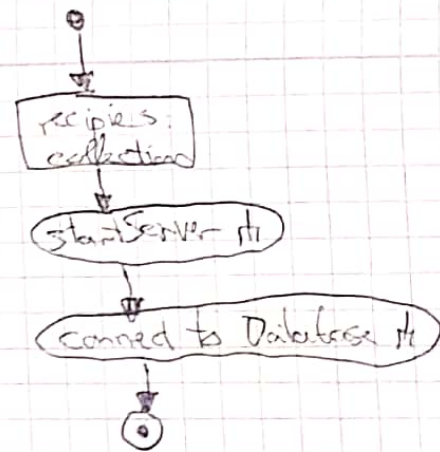 recipies:
collection
startServer
connect to Database